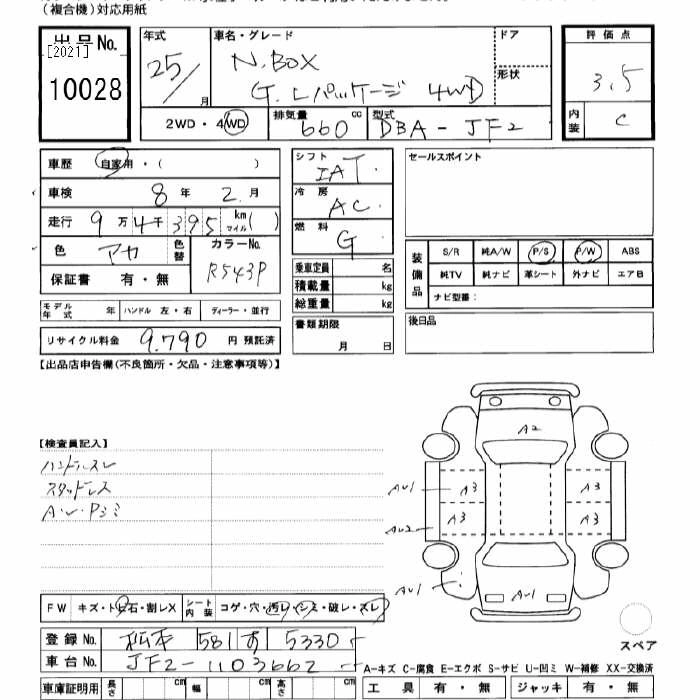 (複合機)対応用紙
出品 No. [2021]
10028
年式 25/ 月
車名・グレード N.BOX
G.Lパッケージ 4WD
ドア
形状
評価点 3.5
内装 C
2WD・4WD
排気量 660 cc
型式 DBA-JF2
車歴 自家用・( )
車検 8 年 2 月
走行 9 万 4 千 395 km マイル ( )
色 アカ 色替
カラーNo. R543P
保証書 有・無
モデル年式 年 ハンドル 左・右 ディーラー・並行
リサイクル料金 9,790 円 預託済
シフト IAT
冷房 AC
燃料 G
乗車定員 名
積載量 kg
総重量 kg
書類期限
月 日
セールスポイント
装備品
S/R 純A/W P/S P/W ABS
純TV 純ナビ 革シート 外ナビ エアB
ナビ型番:
後日品
【出品店申告欄(不良箇所・欠品・注意事項等)】
【検査員記入】
ハンドルスレ
スタッドレス
A・U・Pシミ
A2
AU1 A3 A3
AU2 A3 A3
AU1 AU1
スペア
FW キズ・トビ石・割レX
シート内装 コゲ・穴・汚レ・シミ・破レ・スレ
登録 No. 松本 581 す 5330
車台 No. JF2-1103662
A-キズ C-腐食 E-エクボ S-サビ U-凹ミ W-補修 XX-交換済
車庫証明用 長さ cm 幅 cm 高さ cm
工具 有・無 ジャッキ 有・無